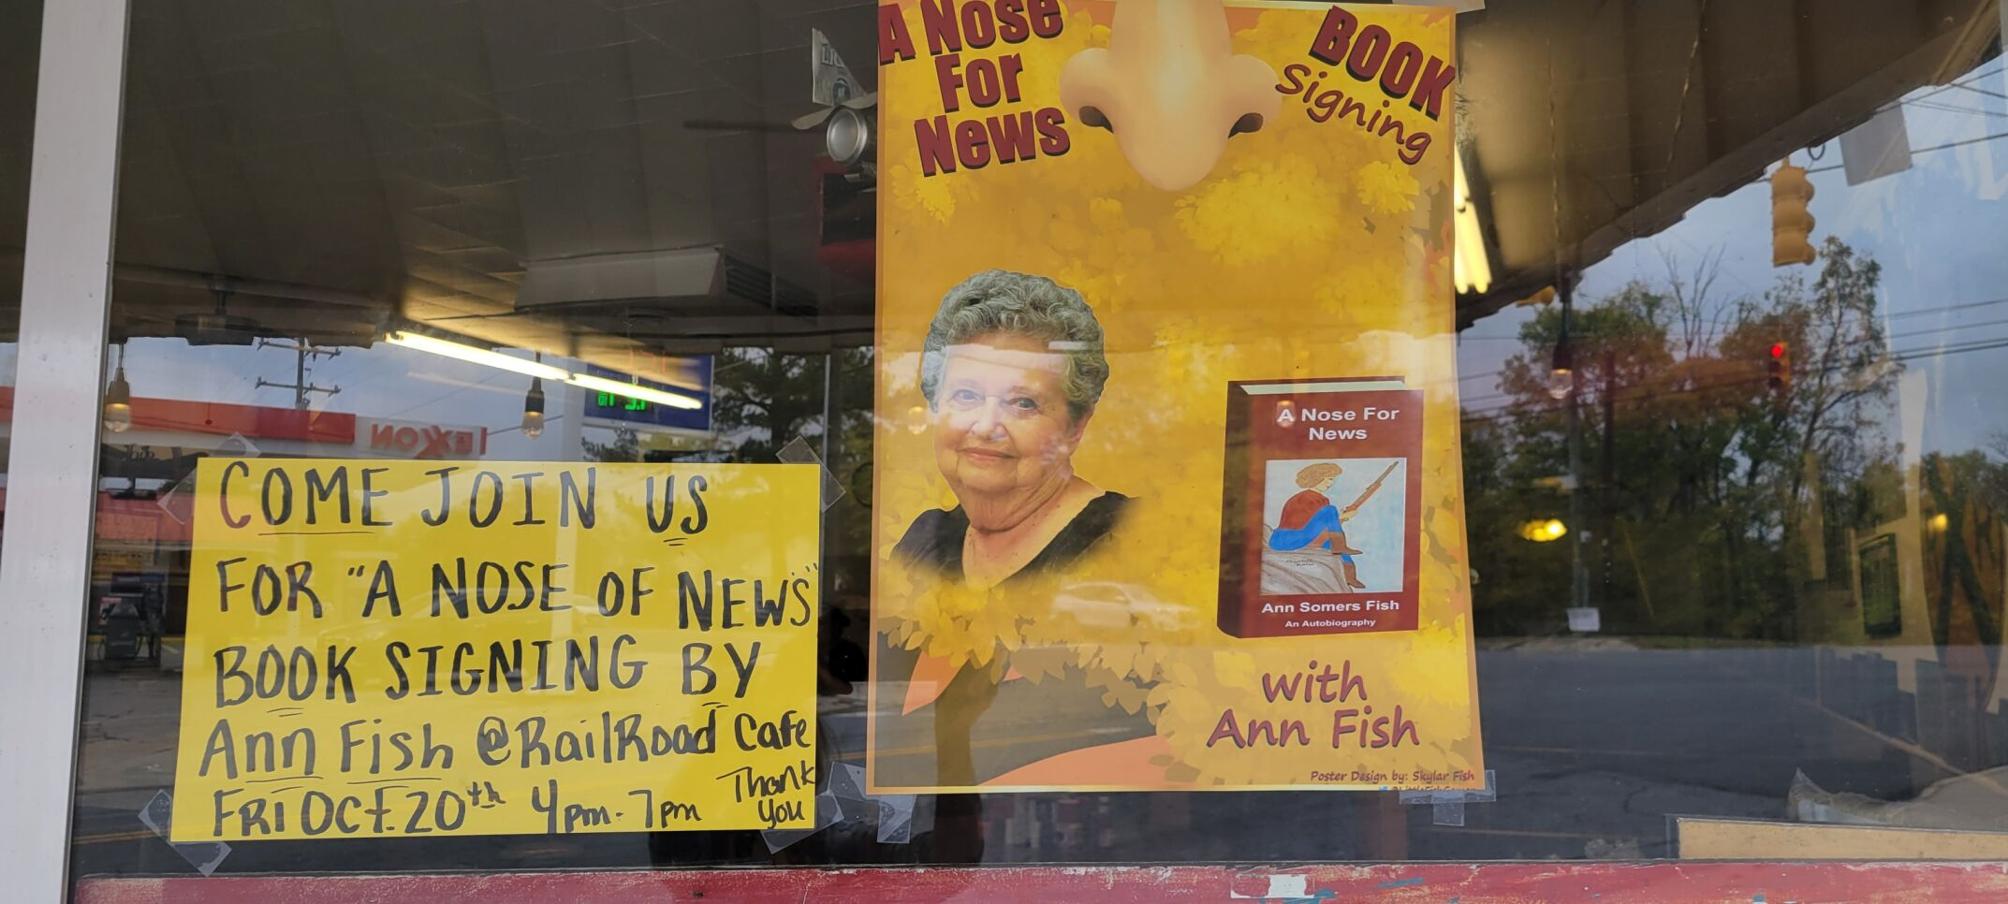 COME JOIN US
FOR "A NOSE OF NEWS"
BOOK SIGNING BY
Ann Fish @RailRoad Cafe
FRI Oct. 20th 4pm - 7pm
Thank
you
A Nose
For
News
BOOK
Signing
A Nose For
News
Ann Somers Fish
An Autobiography
with
Ann Fish
Poster Design by: Skylar Fish
EXXON